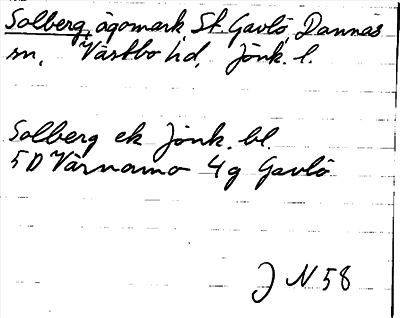 Solberg, ägomark, St. Gavlö, Dannäs
sn, Västbo hd, Jönk. l.
Solberg ek Jönk. bl.
5D Värnamo 4g Gavlö
J N 58